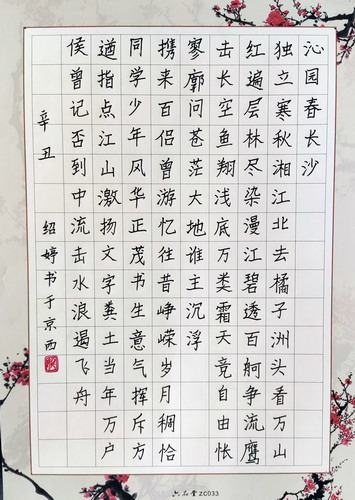 沁园春长沙
独立寒秋湘江北去橘子洲头看万山
红遍层林尽染漫江碧透百舸争流鹰
击长空鱼翔浅底万类霜天竞自由怅
寥廓问苍茫大地谁主沉浮
携来百侣曾游忆往昔峥嵘岁月稠恰
同学少年风华正茂书生意气挥斥方
遒指点江山激扬文字粪土当年万户
侯曾记否到中流击水浪遏飞舟
辛丑 绍婷书于京西
六品堂 ZC033